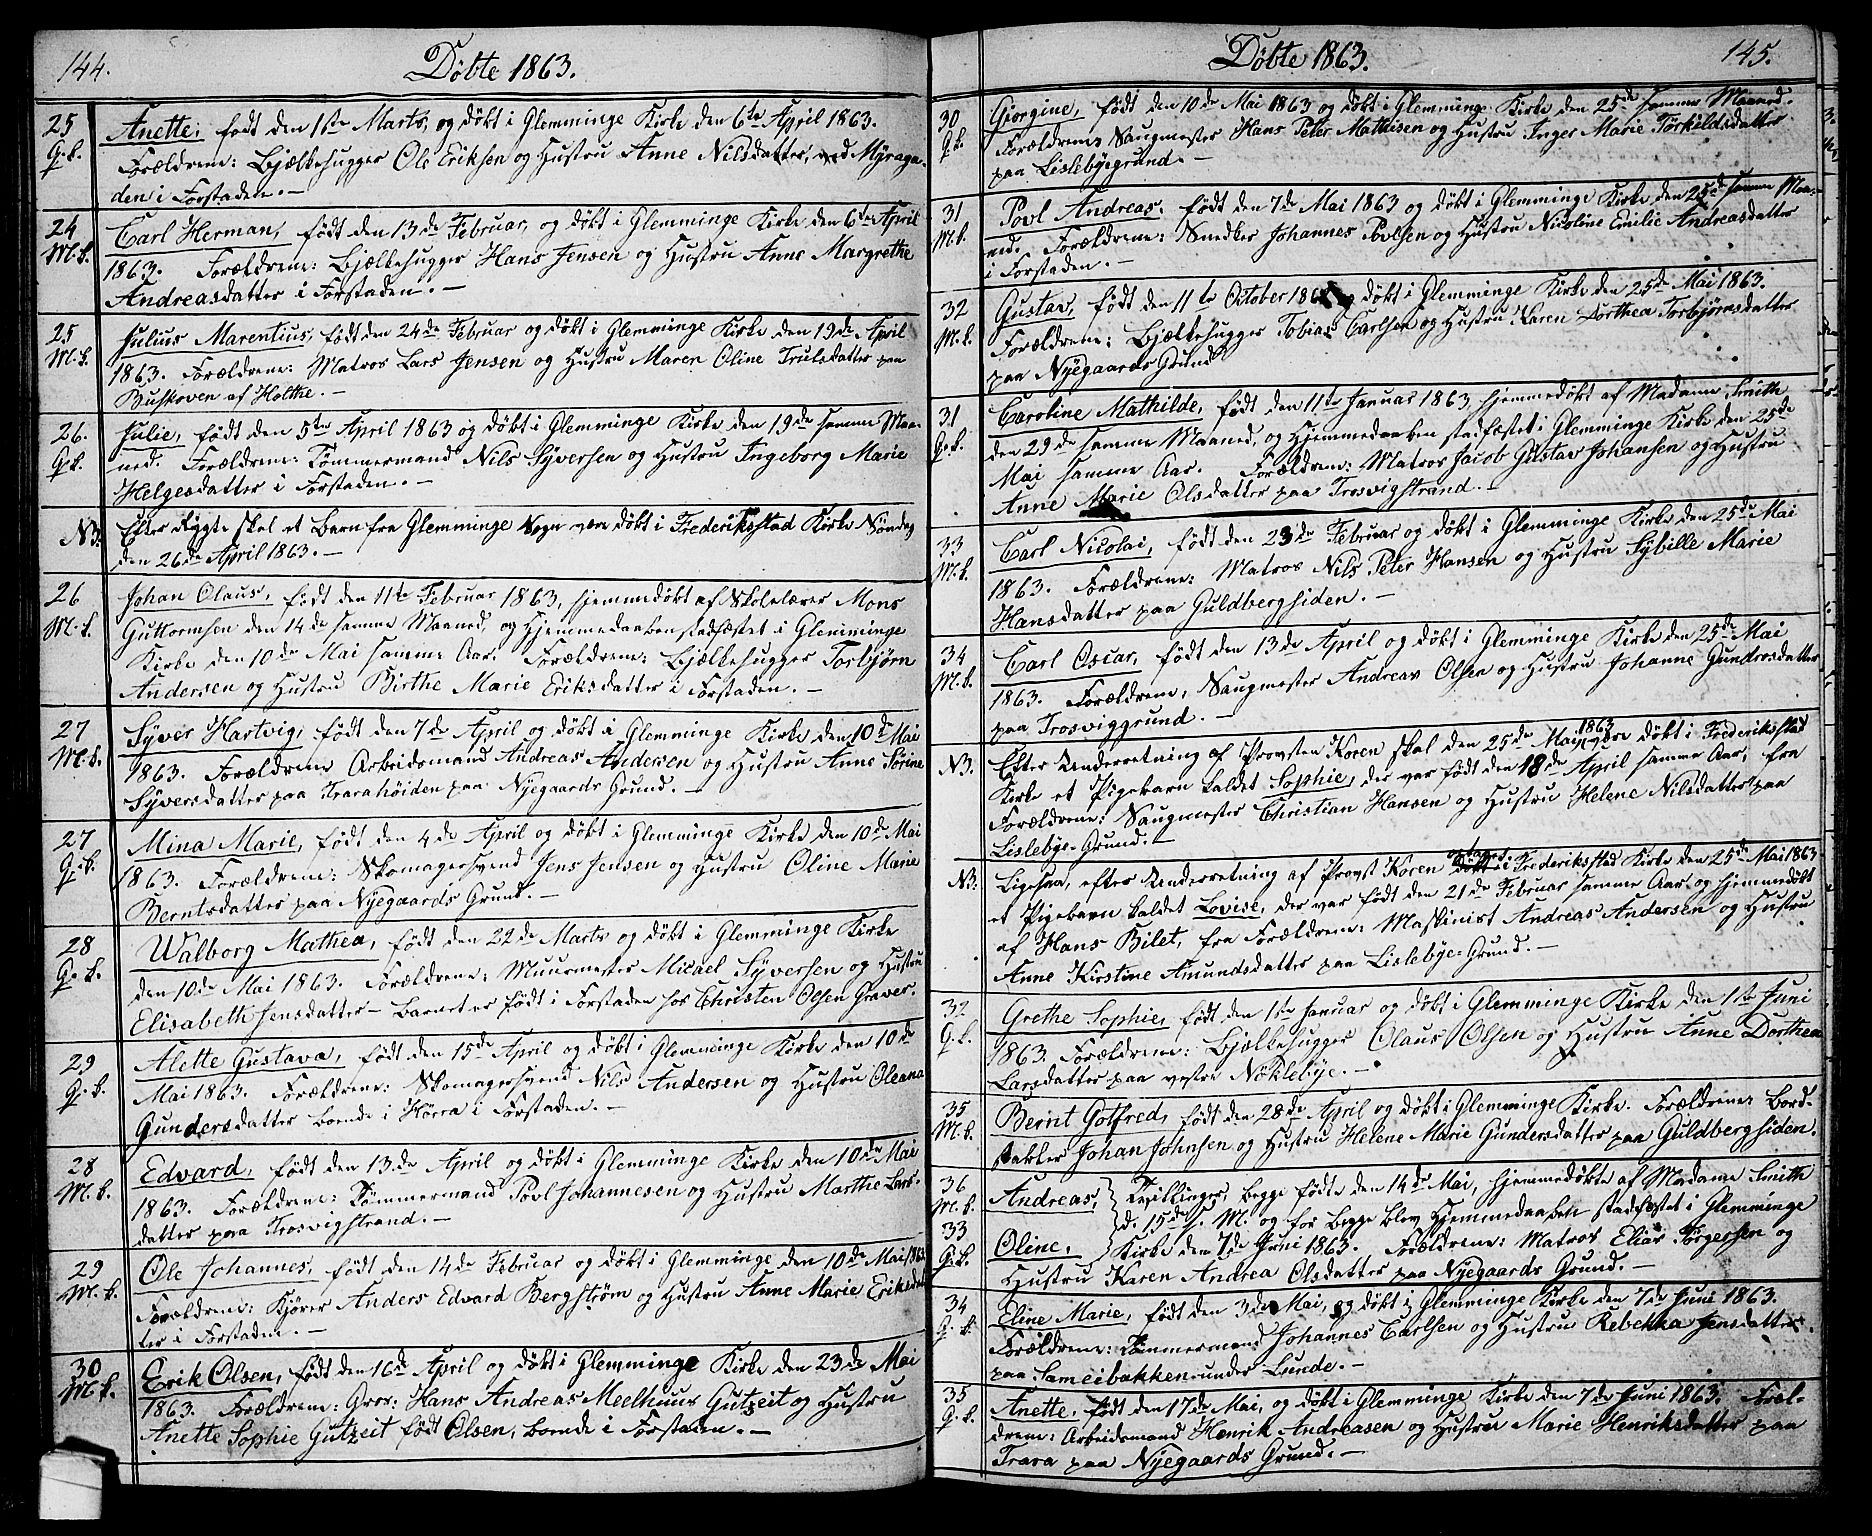 144.
Döbte 1863.
25 Anette, født den 1ste Marts, og døbt i Glemminge Kirke den 6te April 1863.
G.b. Forældrene: Bjælkehugger Ole Eriksen og Hustru Anne Nilsdatter, ved Myraga-
den i Forstaden.-
24 Carl Herman, født den 13de Februar, og døbt i Glemminge Kirke den 6te April
M.b. 1863. Forældrene: Bjælkehugger Hans Jensen og Hustru Anne Margrethe
Andreasdatter i Forstaden.-
25 Julius Marentius, født den 24de Februar og døbt i Glemminge Kirke den 19de April
M.b. 1863. Forældrene: Matros Lars Jensen og Hustru Maren Oline Trulsdatter paa
Buskoven af Holthe.-
26. Julie, født den 5te April 1863 og døbt i Glemminge Kirke den 19de samme Maa-
G.b. ned. Forældrene: Tømmermand Nils Syversen og Hustru Ingeborg Marie
Helgesdatter i Forstaden.-
NB. Efter Rygte skal et Barn fra Glemminge Sogn være døbt i Frederiksstad Kirke Søndag
den 26de April 1863.-
26 Johan Olaus, født den 11te Februar 1863, hjemmedøbt af Skolelærer Mons
M.b. Guttormsen den 14de samme Maaned, og Hjemmedaaben stadfæstet i Glemminge
Kirke den 10de Mai samme Aar. Forældrene: Bjælkehugger Torbjørn
Andersen og Hustru Birthe Marie Eriksdatter i Forstaden.-
27 Syver Hartvig, født den 7de April og døbt i Glemminge Kirke den 10de Mai
M.b. 1863. Forældrene Arbeidsmand Andreas Andersen og Hustru Anne Sørine
Syversdatter paa Trarahöiden paa Nyegaards Grund.-
27 Mina Marie, født den 4de April og døbt i Glemminge Kirke den 10de Mai
G.b. 1863. Forældrene: Skomagersvend Jens Jensen og Hustru Oline Marie
Berntsdatter paa Nyegaards Grund.-
28 Walborg Mathea, født den 22de Marts og døbt i Glemminge Kirke
G.b. den 10de Mai 1863. Forældrene: Muurmester Micael Syversen og Hustru
Elisabeth Jensdatter - Barnet er født i Forstaden hos Christen Olsen Graver.
29 Alette Gustava, født den 15de April og døbt i Glemminge Kirke den 10de
G.b. Mai 1863. Forældrene: Skomagersvend Nils Andersen og Hustru Oleana
Gundersdatter boende i Hørra i Forstaden.-
28 Edvard, født den 13de April og døbt i Glemminge Kirke den 10de Mai
M.b. 1863. Forældrene: Tømmermand Povl Johannesen og Hustru Marthe Lars-
datter paa Trosvigstrand.-
29 Ole Johannes, født den 14de Februar og døbt i Glemminge den 10de Mai 1863
M.b. Forældrene: Kjører Anders Edvard Bergstrøm og Hustru Anne Marie Eriksdat-
ter i Forstaden.-
30 Erik Olsen, født den 16de April og døbt i Glemminge Kirke den 23de Mai
M.b. 1863. Forældrene: Gros: Hans Andreas Meelhuus Gutzeit og Hustru
Anette Sophie Gutzeit født Olsen, boende i Forstaden.-
Döbte 1863.
145.
30 Gjorgine, født den 10de Mai 1863 og døbt i Glemminge Kirke den 25de samme Maaned.
G.b. Forældrene Saugmester Hans Peter Mathisen og Hustru Inger Marie Torkildsdatter
paa Lislebyegrund.-
31 Povl Andreas, født den 7de Mai 1863 og døbt i Glemminge Kirke den 25de samme Maa-
M.b. ned. Forældrene: Snedker Johannes Povlsen og Hustru Nicoline Emilie Andreasdatter
i Forstaden.-
32 Gustav, født den 11te October 186 og døbt i Glemminge Kirke den 25de Mai 1863.
M.b. Forældrene: Bjælkehugger Tobias Carlsen og Hustru Karen Dorthea Torbjørnsdatter
paa Nyegaards Grund
31 Caroline Mathilde, født den 11te Januar 1863, hjemmedøbt af Madame Smith
G.b. den 29de samme Maaned, og Hjemmedaaben stadfæstet i Glemminge Kirke den 25de
Mai samme Aar. Forældrene: Matros Jacob Gustav Johansen og Hustru
Anne Marie Olsdatter paa Trosvigstrand.-
33 Carl Nicolai, født den 23de Februar og døbt i Glemminge Kirke den 25de Mai
M.b. 1863. Forældrene: Matros Nils Peter Hansen og Hustru Sybille Marie
Hansdatter paa Guldbergsiden.-
34 Carl Oscar, født den 13de April og døbt i Glemminge Kirke den 25de Mai
M.b. 1863. Forældrene, Saugmester Andreas Olsen og Hustru Johanne Gundrosdatter
paa Trosviggrund.-
NB. Efter Underretning af Provsten Koren skal den 25de Mai 1863 være døbt i Frederiksstad
Kirke et Pigebarn kaldet Sophie, der var født den 18de April samme Aar, fra
Forældrene: Saugmester Christian Hansen og Hustru Helene Nilsdatter paa
Lislebye-Grund.-
NB. Ligesaa, efter Underretning af Provst Koren optaget i Frederiksstad Kirke den 25de Mai 1863
et Pigebarn kaldet Lovise, der var født den 21de Februar samme Aar og hjemmedøbt
af Hans Bilet, fra Forældrene: Maskinist Andreas Andersen og Hustru
Anne Kirstine Amundsdatter paa Lislebye-Grund.-
32 Grethe Sophie, født den 1ste Januar og døbt i Glemminge Kirke den 1ste Juni
G.b. 1863. Forældrene: Bjælkehugger Olaus Olsen og Hustru Anne Dorthea
Larsdatter paa vestre Nöklebye.-
35 Bernt Gotfred, født den 28de April og døbt i Glemminge Kirke. Forældrene: Bord-
M.b. stabler Johan Johnsen og Hustru Helene Marie Gundersdatter paa Guldbergsiden.
36 Andreas, Tvillinger, begge fødte den 14de Mai, hjemmedøbte af Madame Smith
M.b. d. 15de s. M. og for begge blev Hjemmedaaben stadfæstet i Glemminge
33 Oline, Kirke den 7de Juni 1863. Forældrene: Matros Elias Torgersen og
G.b. Hustru Karen Andrea Olsdatter paa Nyegaards Grund.-
34 Eline Marie, født den 3de Mai, og døbt i Glemminge Kirke den 7de Juni 1863.
G.b. Forældrene: Tømmermand Johannes Carlsen og Hustru Rebekka Jensdatter
paa Sameibakken under Lunde.-
35 Anette, født den 17de Mai, og døbt i Glemminge Kirke den 7de Juni 1863. Foræl-
G.b. drene: Arbeidsmand Henrik Andreasen og Hustru Marie Henriksdatter paa
Trara paa Nyegaards Grund.-